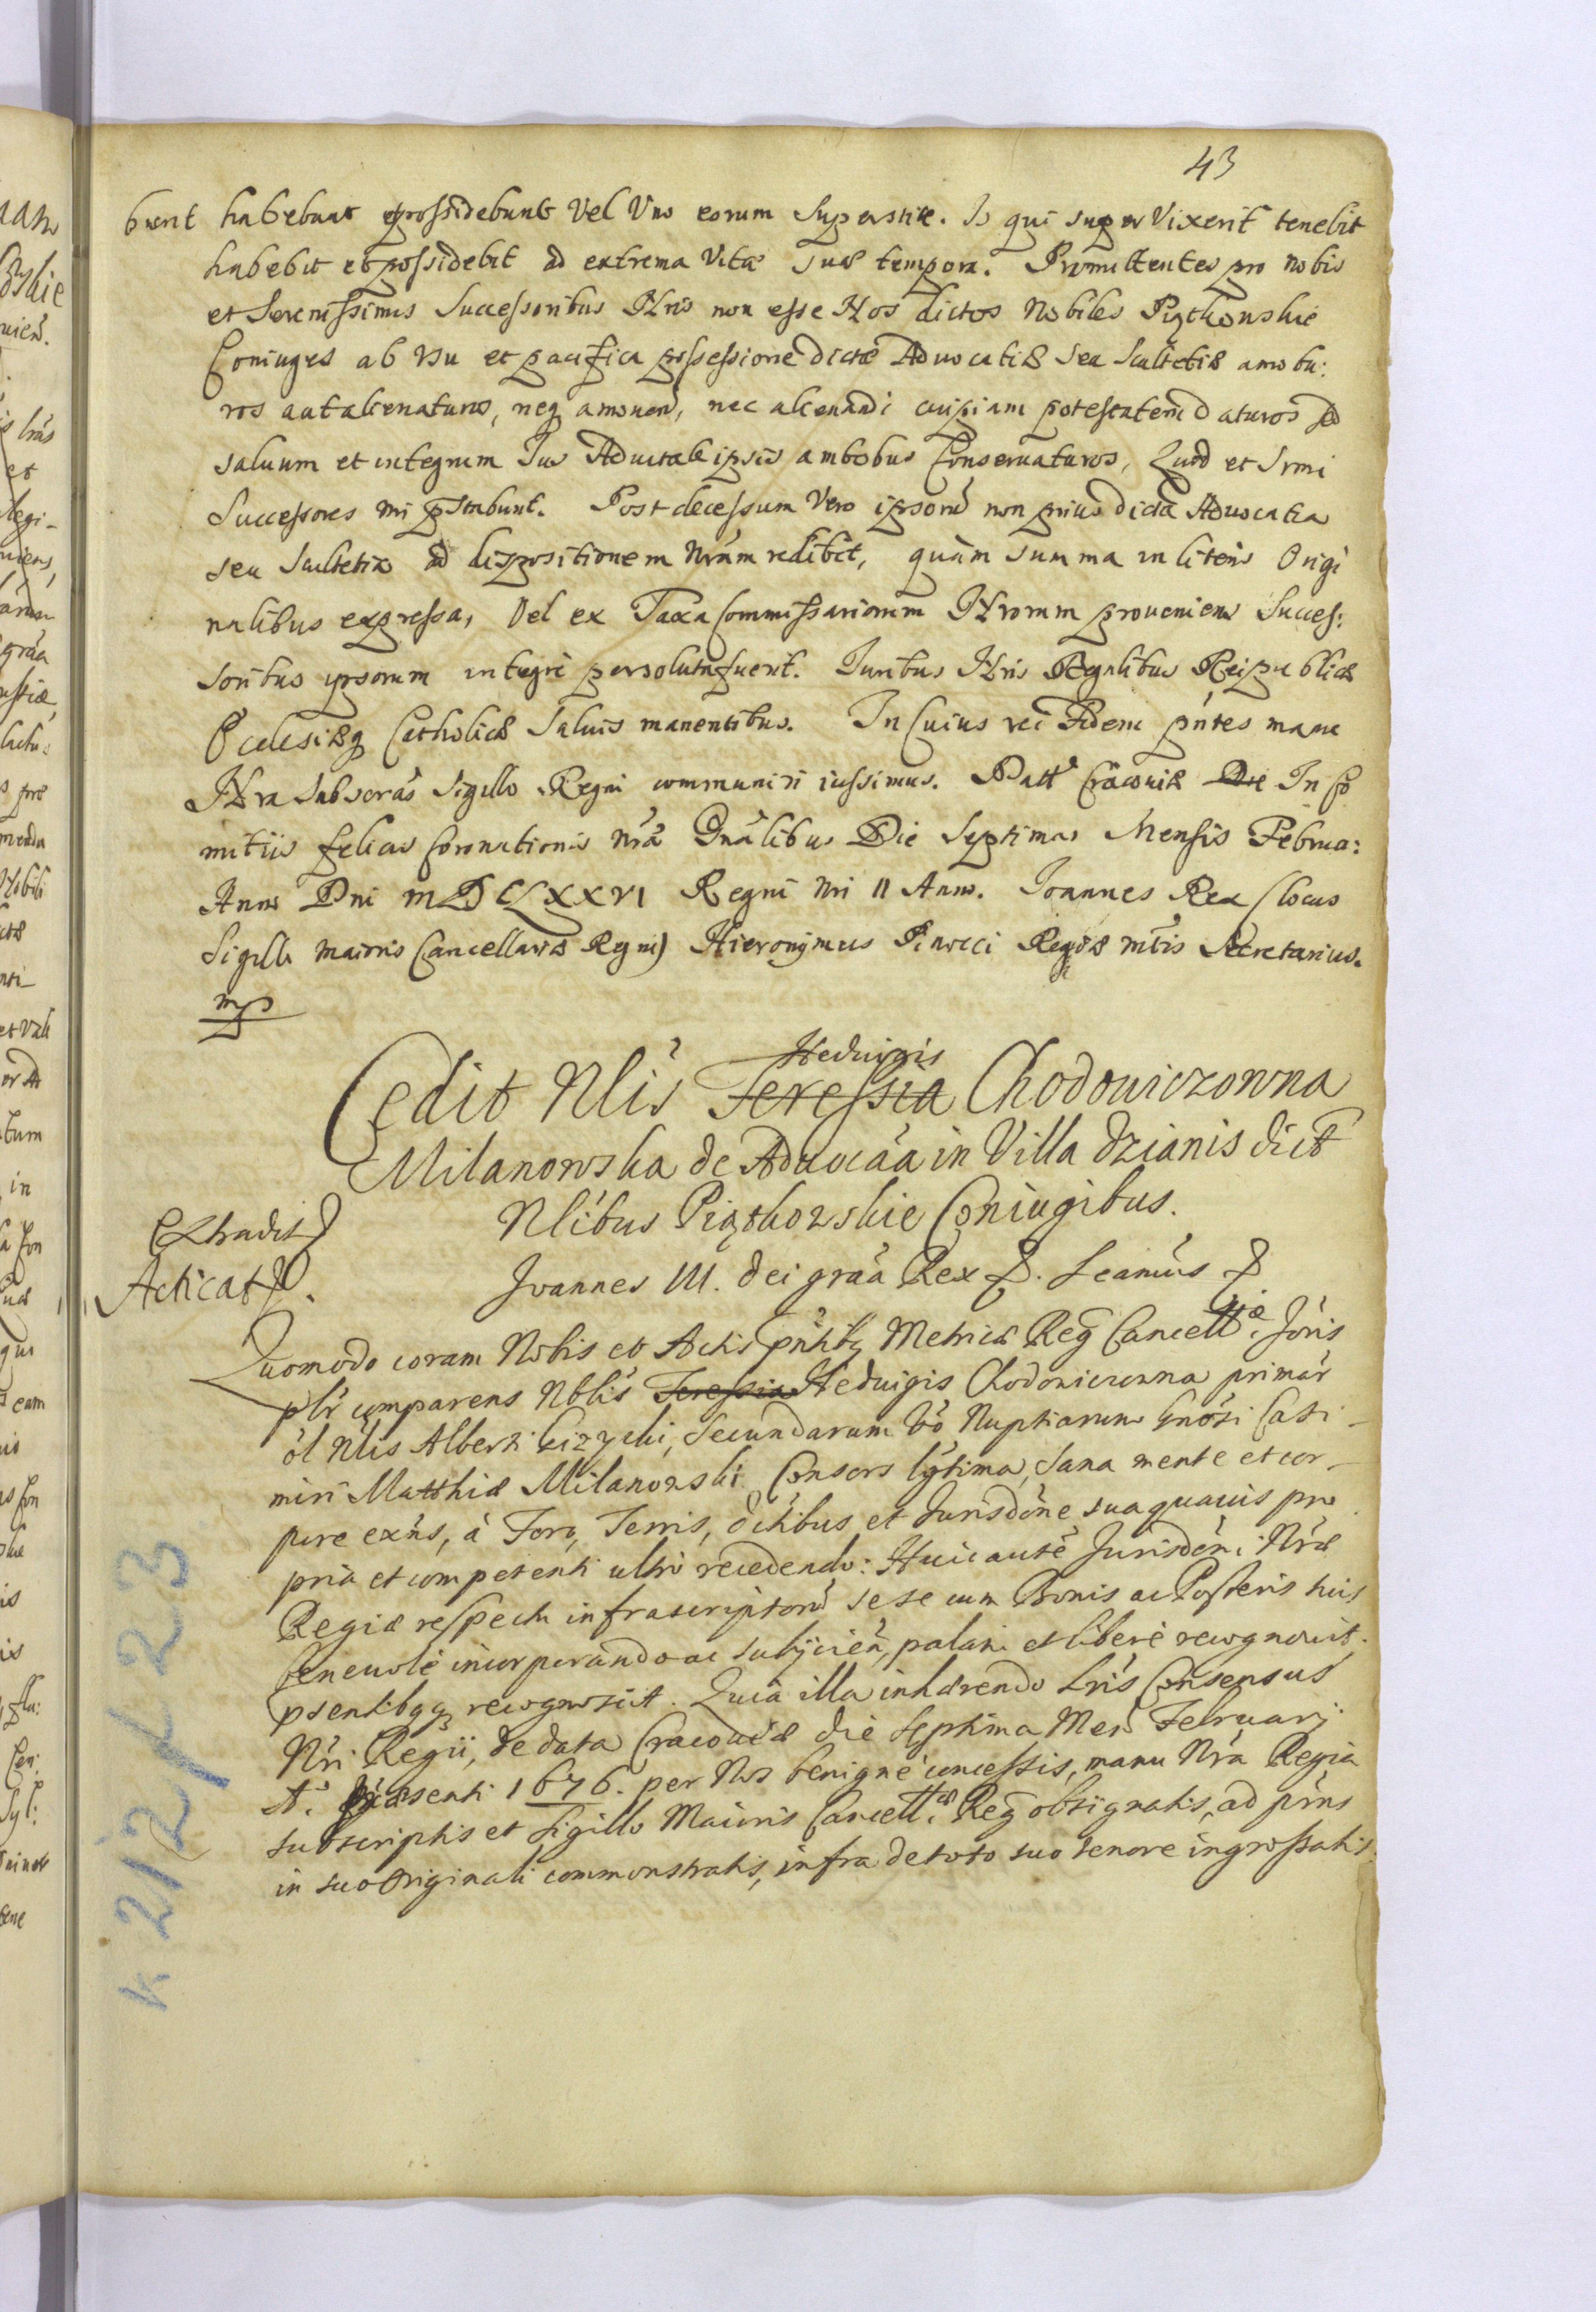 43
bunt habebunt et possidebunt Vel Uno eorum Superstite. Is qui super Vixerit tenebit
habebit et possidebit ad extrema Vitæ suæ tempora. Promittentes pro nobis
et Serenissimis Successoribus Nris non esse Nos dictos Nobiles Piątkowskie
Coniuges ab usu et pacifica possessione dictæ Aduocatiæ seu Scultetiæ amotu:
ros aut alienaturos, neq amouen, nec alienandi cuipiam potestatem daturos sed
saluum et integrum Ius Aduitale ipsis ambobus Conseruaturos, Quod et Srmi
Successores nri pstabunt. Post decessum Vero ipsorũ non prius dicta Aduocatia
seu Scultetia ad dispositionem Nram redibit, quàm summa in literis Origi
nalibus expressa, Vel ex Taxa Commissariorum Nrorum proueniens Succes:
soribus ipsorum integrè persoluta fuerit. Iuribus Nris Regalibus Reipublicæ
Ecclesiæq Catholicæ Saluis manentibus. In Cuius rei Fidem pntes manu
Nra Subscras Sigillo Regni communiri iussimus. Datt Cracouiæ Die In Co
mitiis felicis Coronationis nræ Gnalibus Die Septima Mensis Februa:
Anno Dni MDCLXXVI Regni Nri II Anno. Joannes Rex (locus
Sigilli maioris Cancellariæ Regni) Hieronymus Pinocci Regiæ mtis Secretarius.
mp
Heduigis
Cedit Nlis Teressia Chodowiczowna
Milanowska de Aduocaa in Villa Dzianis dict
Nlibus Piątkowskie Coniugibus.
Extradit
Acticat.
Joannes III. Dei graa Rex P. Seamus P
Quomodo coram Nobis et Actis pntibq Metricæ Reg Cancellriæ Joris
plr comparens Nblis Teressia Heduigis Chodowiczowna primar
ol Nlis Alberti Gizycki, Secundarum Vo Nuptiarum Gnosi Casi-
miri Matthiæ Milanowski Consors lgtima, sana mente et cor-
pore exns, à Foro, Terris, Dctibus et Jurisdone sua quauis pro
pria et competenti ultro recedendo: Huic autẽ Jurisdoni Nræ
Regiæ respectu infrascriptorũ sese cum Bonis ac Posteris suis
beneuolè incorporando ac subijcien, palam et liberè recognouit
psentibqq recognoscit. Quia illa inhærendo Lris Consensus
Nri Regii, de data Cracouiæ die Septima Men Februarij
A. Præsenti 1676. per Nos benignè concessis, manu Nra Regia
subscriptis et Sigillo Maioris Cancellæ Reg obsignatis, ad pns
in suo Originali commonstratis, infra de toto suo tenore ingrossatis
K 212/L23